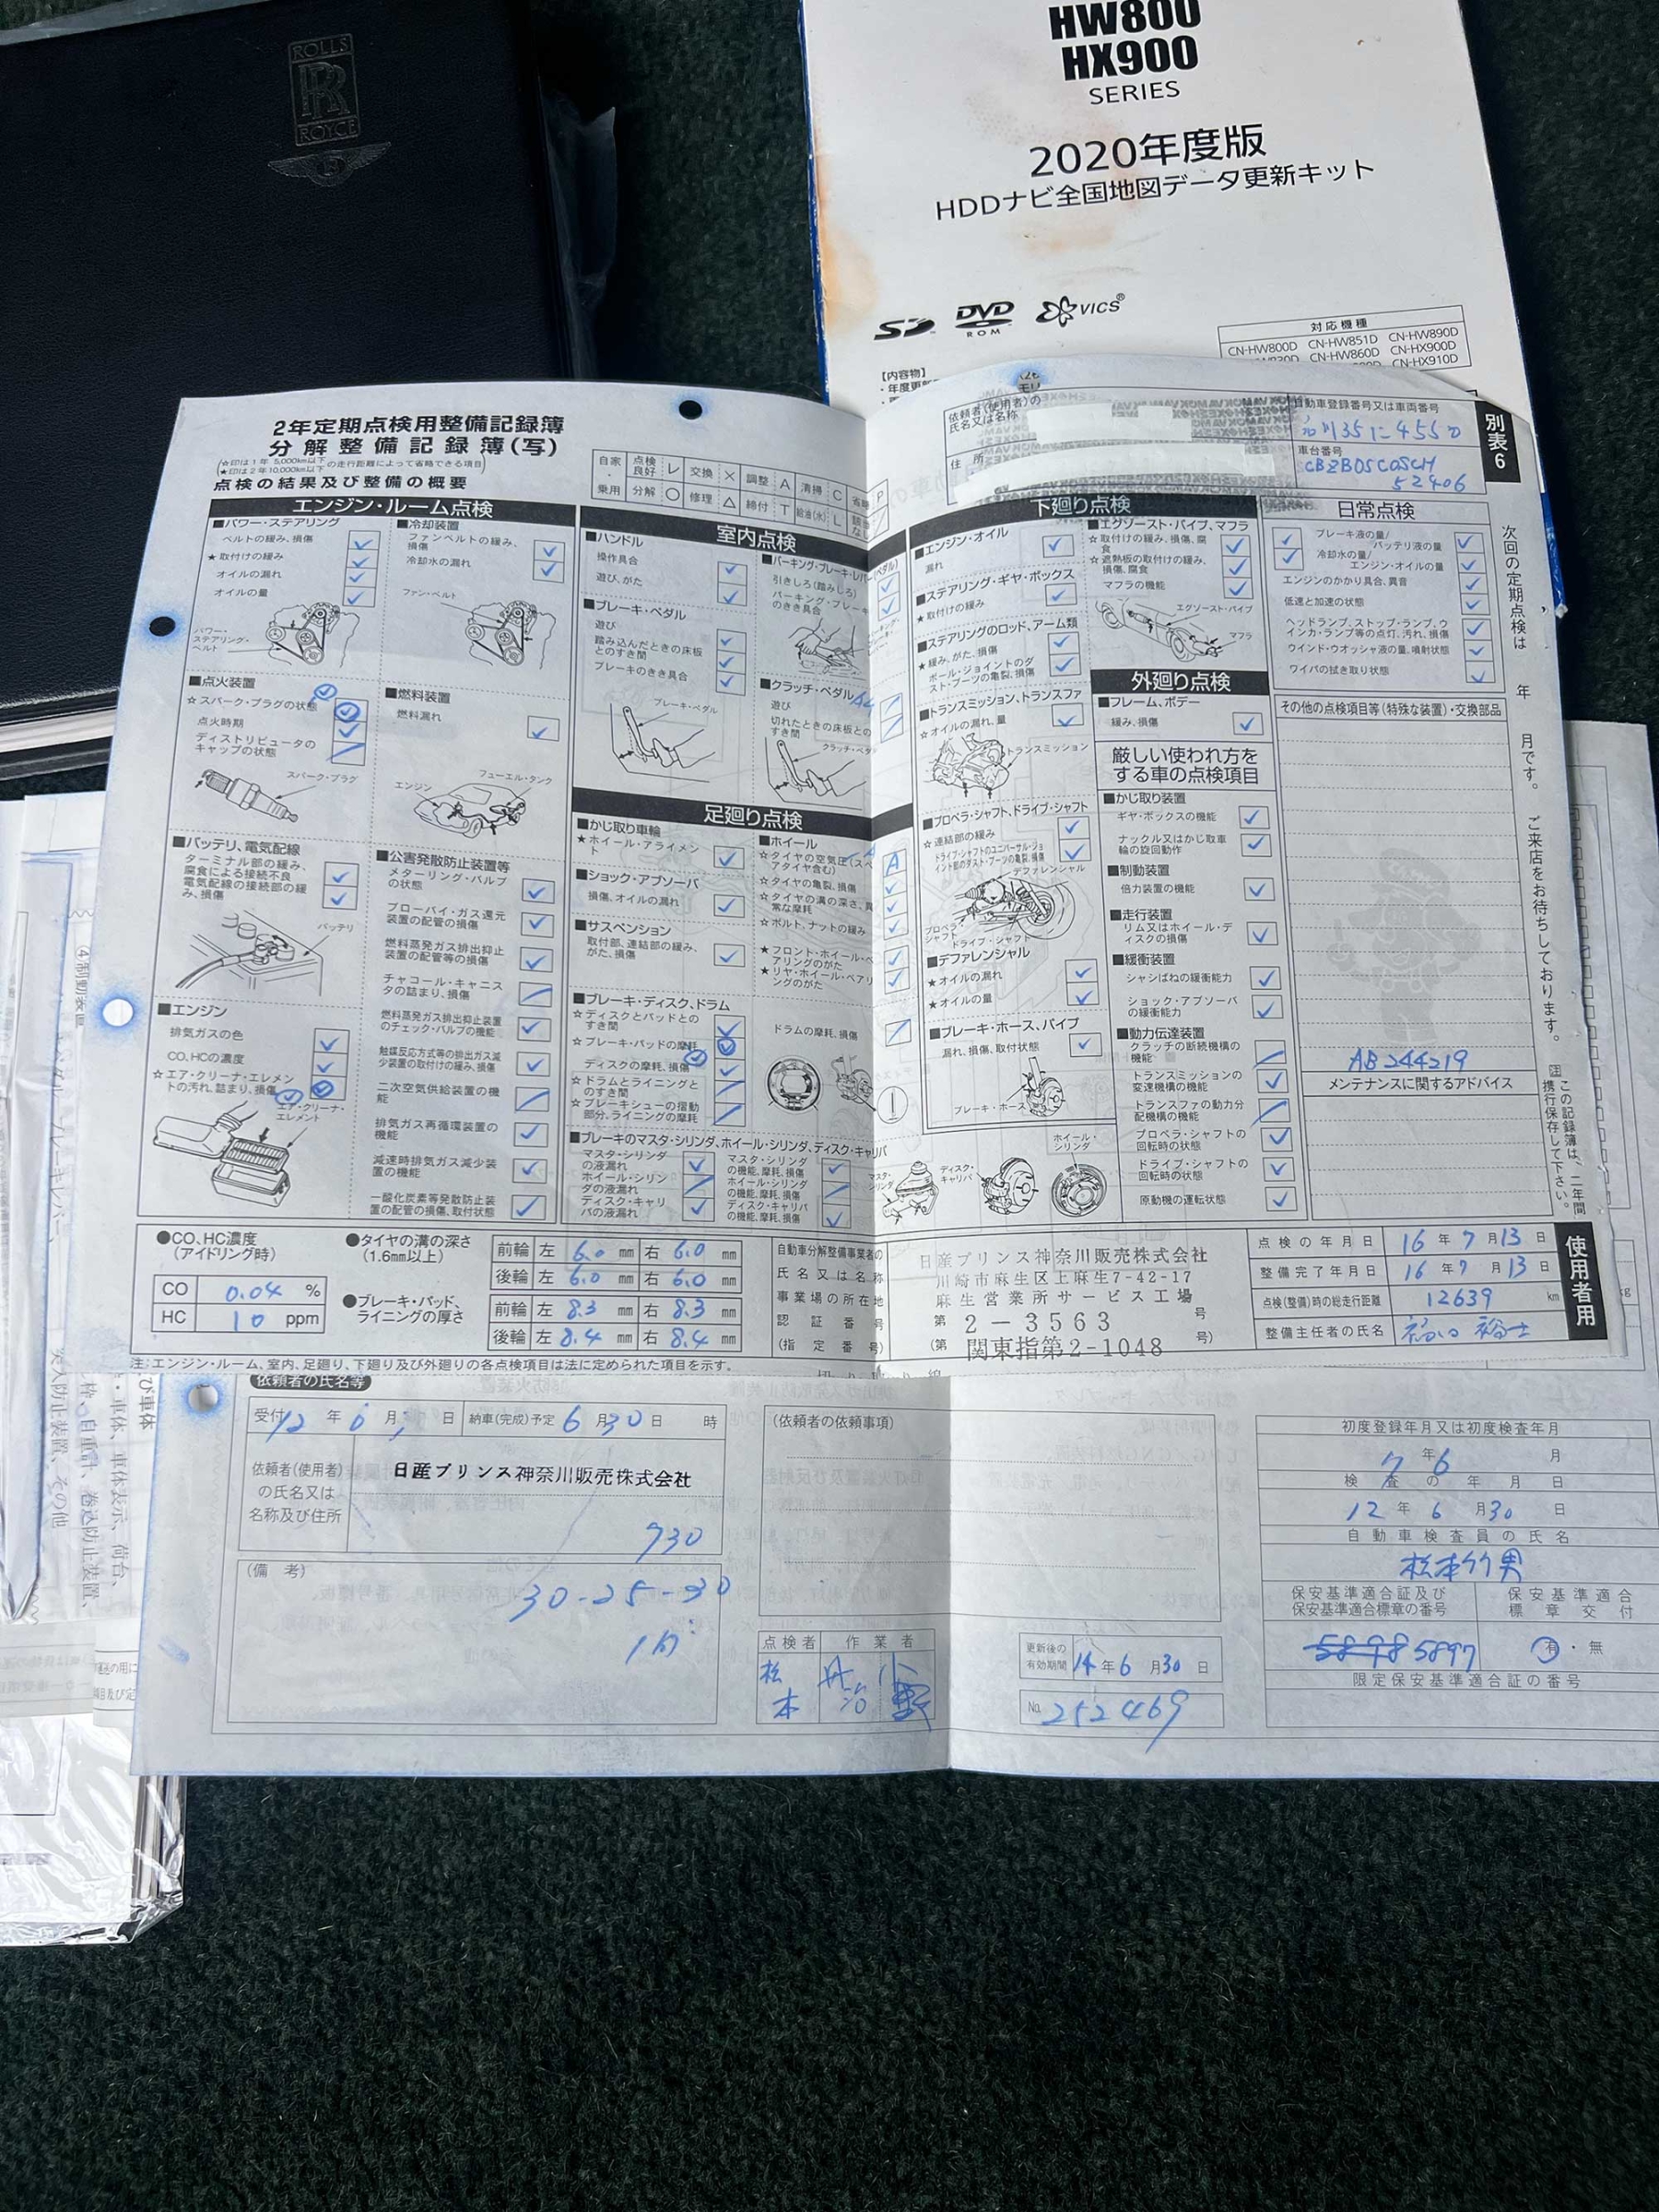 ROLLS
RR
ROYCE
B
HW800
HX900
SERIES
2020年度版
HDDナビ全国地図データ更新キット
SD DVD ROM VICS
対応機種
CN-HW800D CN-HW851D CN-HW890D
CN-HW860D CN-HX900D
CN-HX910D
【内容物】
2年定期点検用整備記録簿
分解整備記録簿(写)
☆印は1年 5,000km以下
★印は2年10,000km以下
の走行距離によって省略できる項目
点検の結果及び整備の概要
自家 点検良好 レ 交換 × 調整 A 清掃 C 省略 P
乗用 分解 ○ 修理 △ 締付 T 給油(水) L
依頼者(使用者)の
氏名又は名称
住 所
自動車登録番号又は車両番号
車台番号
52406
別表6
エンジン・ルーム点検
■パワー・ステアリング
ベルトの緩み、損傷
★取付けの緩み
オイルの漏れ
オイルの量
パワー・
ステアリング・
ベルト
■冷却装置
ファンベルトの緩み、
損傷
冷却水の漏れ
ファン・ベルト
■点火装置
☆スパーク・プラグの状態
点火時期
ディストリビュータの
キャップの状態
スパーク・プラグ
■燃料装置
燃料漏れ
フューエル・タンク
エンジン
■バッテリ、電気配線
ターミナル部の緩み、
腐食による接続不良
電気配線の接続部の緩
み、損傷
バッテリ
■公害発散防止装置等
メターリング・バルブ
の状態
ブローバイ・ガス還元
装置の配管の損傷
燃料蒸発ガス排出抑止
装置の配管等の損傷
チャコール・キャニス
タの詰まり、損傷
燃料蒸発ガス排出抑止装置
のチェック・バルブの機能
触媒反応方式等の排出ガス減
少装置の取付けの緩み、損傷
二次空気供給装置の機
能
排気ガス再循環装置の
機能
減速時排気ガス減少装
置の機能
一酸化炭素等発散防止装
置の配管の損傷、取付状態
■エンジン
排気ガスの色
CO、HCの濃度
☆エア・クリーナ・エレメン
トの汚れ、詰まり、損傷
エア・クリーナ・
エレメント
室内点検
■ハンドル
操作具合
遊び、がた
■ブレーキ・ペダル
遊び
踏み込んだときの床板
とのすき間
ブレーキのきき具合
ブレーキ・ペダル
引きしろ(踏みしろ)
パーキング・ブレーキ
のきき具合
■クラッチ・ペダル
遊び
切れたときの床板との
すき間
足廻り点検
■かじ取り車輪
★ホイール・アライメン
ト
■ショック・アブソーバ
損傷、オイルの漏れ
■サスペンション
取付部、連結部の緩み、
がた、損傷
■ホイール
☆タイヤの亀裂、損傷
☆タイヤの溝の深さ、異
常な摩耗
☆ボルト、ナットの緩み
★フロント・ホイール・ベ
アリングのがた
★リヤ・ホイール・ベアリ
ングのがた
■ブレーキ・ディスク、ドラム
☆ディスクとパッドとの
すき間
☆ブレーキ・パッドの摩耗
ディスクの摩耗、損傷
☆ドラムとライニングと
のすき間
☆ブレーキシューの摺動
部分、ライニングの摩耗
ドラムの摩耗、損傷
■ブレーキのマスタ・シリンダ、ホイール・シリンダ、ディスク・キャリパ
マスタ・シリンダ
の液漏れ
ホイール・シリン
ダの液漏れ
ディスク・キャリ
パの液漏れ
マスタ・シリンダ
の機能、摩耗、損傷
ホイール・シリンダ
の機能、摩耗、損傷
ディスク・キャリパ
の機能、摩耗、損傷
下廻り点検
■エンジン・オイル
漏れ
■ステアリング・ギヤ・ボックス
★取付けの緩み
■ステアリングのロッド、アーム類
★緩み、がた、損傷
ボール・ジョイントのダ
スト・ブーツの亀裂、損傷
■トランスミッション、トランスファ
☆オイルの漏れ、量
トランスミッション
■プロペラ・シャフト、ドライブ・シャフト
☆連結部の緩み
ドライブ・シャフトのユニバーサル・ジョ
イント部のダスト・ブーツの亀裂、損傷
デファレンシャル
プロペラ・
シャフト
ドライブ・シャフト
■デファレンシャル
★オイルの漏れ
★オイルの量
■ブレーキ・ホース、パイプ
漏れ、損傷、取付状態
ブレーキ・ホース
マスタ・
シリンダ
ディスク・
キャリパ
ホイール・
シリンダ
■エグゾースト・パイプ、マフラ
☆取付けの緩み、損傷、腐
食
☆遮熱板の取付けの緩み、
損傷、腐食
マフラの機能
エグゾースト・パイプ
マフラ
外廻り点検
■フレーム、ボデー
緩み、損傷
厳しい使われ方を
する車の点検項目
■かじ取り装置
ギヤ・ボックスの機能
ナックル又はかじ取車
輪の旋回動作
■制動装置
倍力装置の機能
■走行装置
リム又はホイール・デ
ィスクの損傷
■緩衝装置
シャシばねの緩衝能力
ショック・アブソーバ
の緩衝能力
■動力伝達装置
クラッチの断続機構の
機能
トランスミッションの
変速機構の機能
トランスファの動力分
配機構の機能
プロペラ・シャフトの
回転時の状態
ドライブ・シャフトの
回転時の状態
原動機の運転状態
日常点検
ブレーキ液の量/
バッテリ液の量
冷却水の量/
エンジン・オイルの量
エンジンのかかり具合、異音
低速と加速の状態
ヘッドランプ、ストップ・ランプ、ウ
インカ・ランプ等の点灯、汚れ、損傷
ウインド・ウオッシャ液の量、噴射状態
ワイパの拭き取り状態
その他の点検項目等(特殊な装置)・交換部品
AB244219
メンテナンスに関するアドバイス
次回の定期点検は 年 月です。ご来店をお待ちしております。
注 この記録簿は、二年間
携行保存して下さい。
●CO、HC濃度
(アイドリング時)
CO 0.04 %
HC 10 ppm
●タイヤの溝の深さ
(1.6mm以上)
前輪 左 6.0 mm 右 6.0 mm
後輪 左 6.0 mm 右 6.0 mm
●ブレーキ・パッド、
ライニングの厚さ
前輪 左 8.3 mm 右 8.3 mm
後輪 左 8.4 mm 右 8.4 mm
自動車分解整備事業者の
氏名又は名称
事業場の所在地
認証番号
(指定番号)
日産プリンス神奈川販売株式会社
川崎市麻生区上麻生7-42-17
麻生営業所サービス工場
第 2-3563 号
(第 関東指第2-1048 号)
点検の年月日 16年7月13日
整備完了年月日 16年7月13日
点検(整備)時の総走行距離 12639 km
整備主任者の氏名
使用者用
注:エンジン・ルーム、室内、足廻り、下廻り及び外廻りの各点検項目は法に定められた項目を示す。
依頼者の氏名等
受付 12年6月 日 納車(完成)予定 6月30日 時
依頼者(使用者)
の氏名又は
名称及び住所
日産プリンス神奈川販売株式会社
730
(備 考)
30-25-30
(依頼者の依頼事項)
点検者 作業者
松本
更新後の
有効期間 14年6月30日
No. 252469
初度登録年月又は初度検査年月
7年6月
検査の年月日
12年6月30日
自動車検査員の氏名
松本竹男
保安基準適合証及び
保安基準適合標章の番号
5898 5897
保安基準適合
標章交付
有・無
限定保安基準適合証の番号
④制動装置